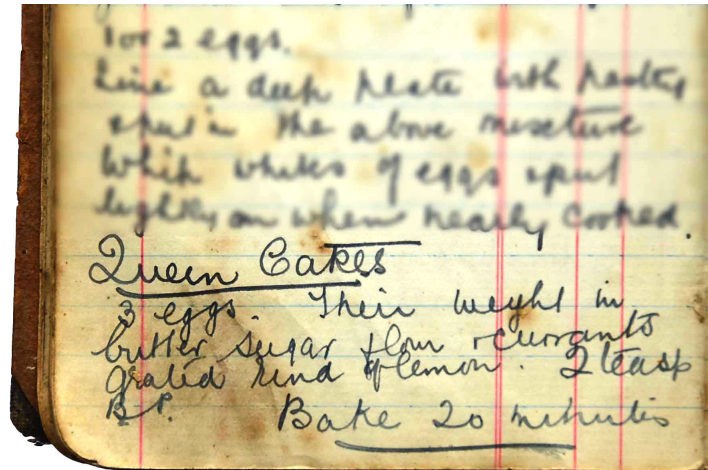 1 or 2 eggs.
Line a deep plate with pastry
spread in the above mixture
Whip whites of eggs spread
lightly on when nearly cooked.
Queen Cakes
3 eggs. Their weight in
butter sugar flour + currants
grated rind of lemon. 2 teasp
B.P. Bake 20 minutes